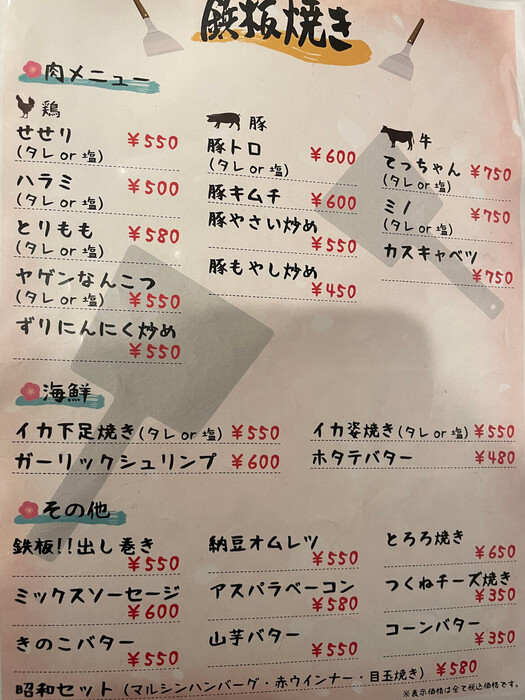 鉄板焼き
肉メニュー
鶏
せせり
(タレ or 塩) ¥550
ハラミ
(タレ or 塩) ¥500
とりもも
(タレ or 塩) ¥580
ヤゲンなんこつ
(タレ or 塩) ¥550
ずりにんにく炒め
¥550
豚
豚トロ
(タレ or 塩) ¥600
豚キムチ ¥600
豚やさい炒め
¥550
豚もやし炒め
¥450
牛
てっちゃん
(タレ or 塩) ¥750
ミノ
(タレ or 塩) ¥750
カスキャベツ
¥750
海鮮
イカ下足焼き(タレ or 塩) ¥550
ガーリックシュリンプ ¥600
イカ姿焼き(タレ or 塩) ¥550
ホタテバター ¥480
その他
鉄板!!出し巻き
¥550
ミックスソーセージ
¥600
きのこバター
¥550
納豆オムレツ
¥550
アスパラベーコン
¥580
山芋バター
¥550
とろろ焼き
¥650
つくねチーズ焼き
¥350
コーンバター
¥350
昭和セット (マルシンハンバーグ・赤ウインナー・目玉焼き) ¥580
※表示価格は全て税込価格です。